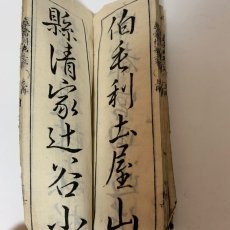 伯毛利土屋山
縣清家辻谷小